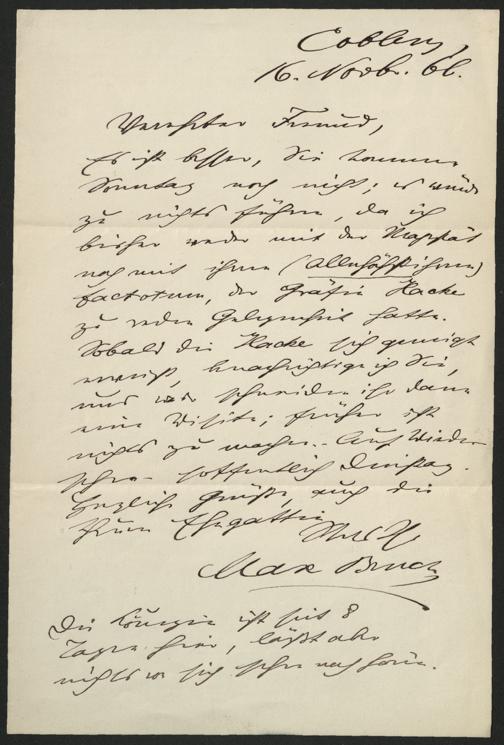 Coblenz,
16. Novbr. 66.
Verehrter Freund,
Es ist besser, Sie kommen
Sonntag noch nicht; es würde
zu nichts führen, da ich
bisher weder mit der Majestät
noch mit ihrem (Allerhöchstihrem)
factotum, der Gräfin Hacke
zu reden Gelegenheit hatte.
Sobald die Hacke sich geneigt
erweist, benachrichtige ich Sie,
und wir schneiden ihr dann
eine Visite; früher ist
nichts zu machen. - Auf Wieder-
sehen hoffentlich Dienstag.
Herzliche Grüße, auch die
Ihrer Ehegattin
Max Bruch
Die Königin ist seit 8
Tagen hier, läßt aber
nichts von sich sehen noch hören.